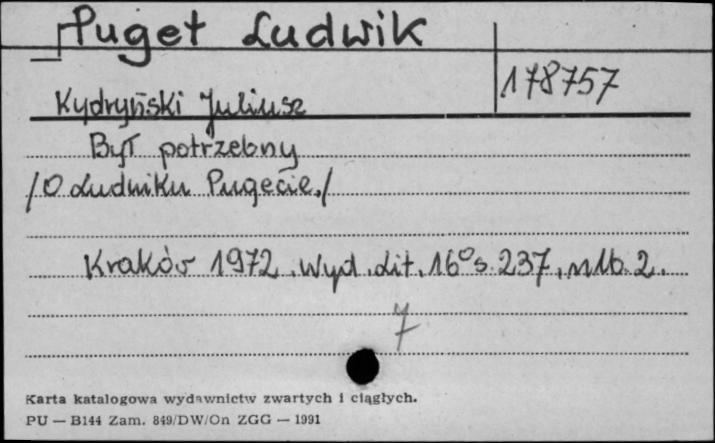 Puget Ludwik
178757
Kydryński Juliusz
Był potrzebny
/O Ludwiku Pugecie./
Kraków 1972. Wyd. Lit. 16° s. 237, nlb. 2.
7
Karta katalogowa wydawnictw zwartych i ciągłych.
PU — B144 Zam. 849/DW/On ZGG — 1991